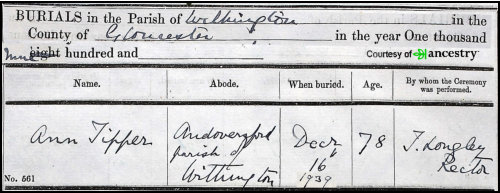 BURIALS in the Parish of Withington in the
County of Gloucester in the year One thousand
nine
eight hundred and
Courtesy of ancestry
Name. Abode. When buried. Age. By whom the Ceremony was performed.
Ann Tipper
Andoversford
parish of
Withington
Decr
16
1939
78
T. Longley
Rector
No. 561